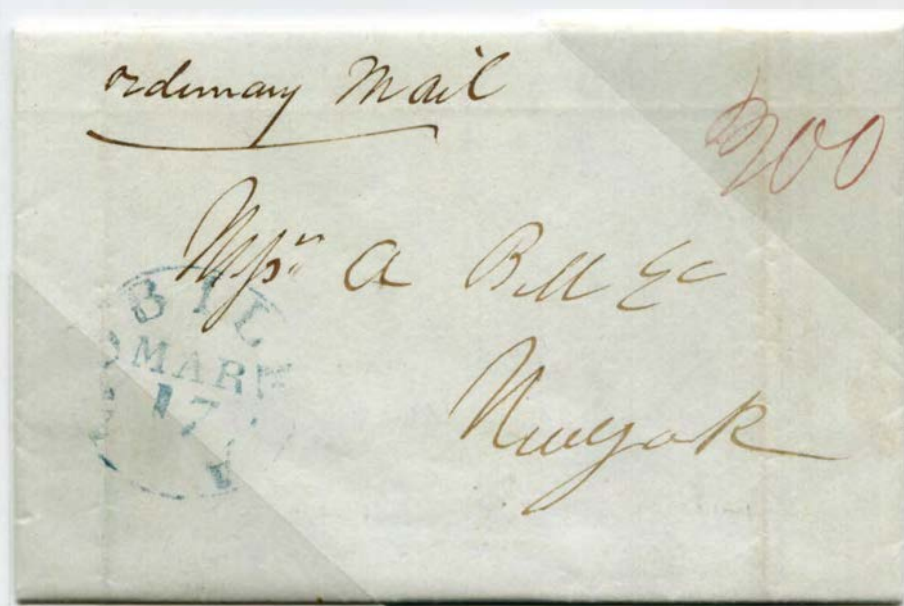 ordinary Mail
200
Messrs A Bell &c
New York
BIL
MAR
17